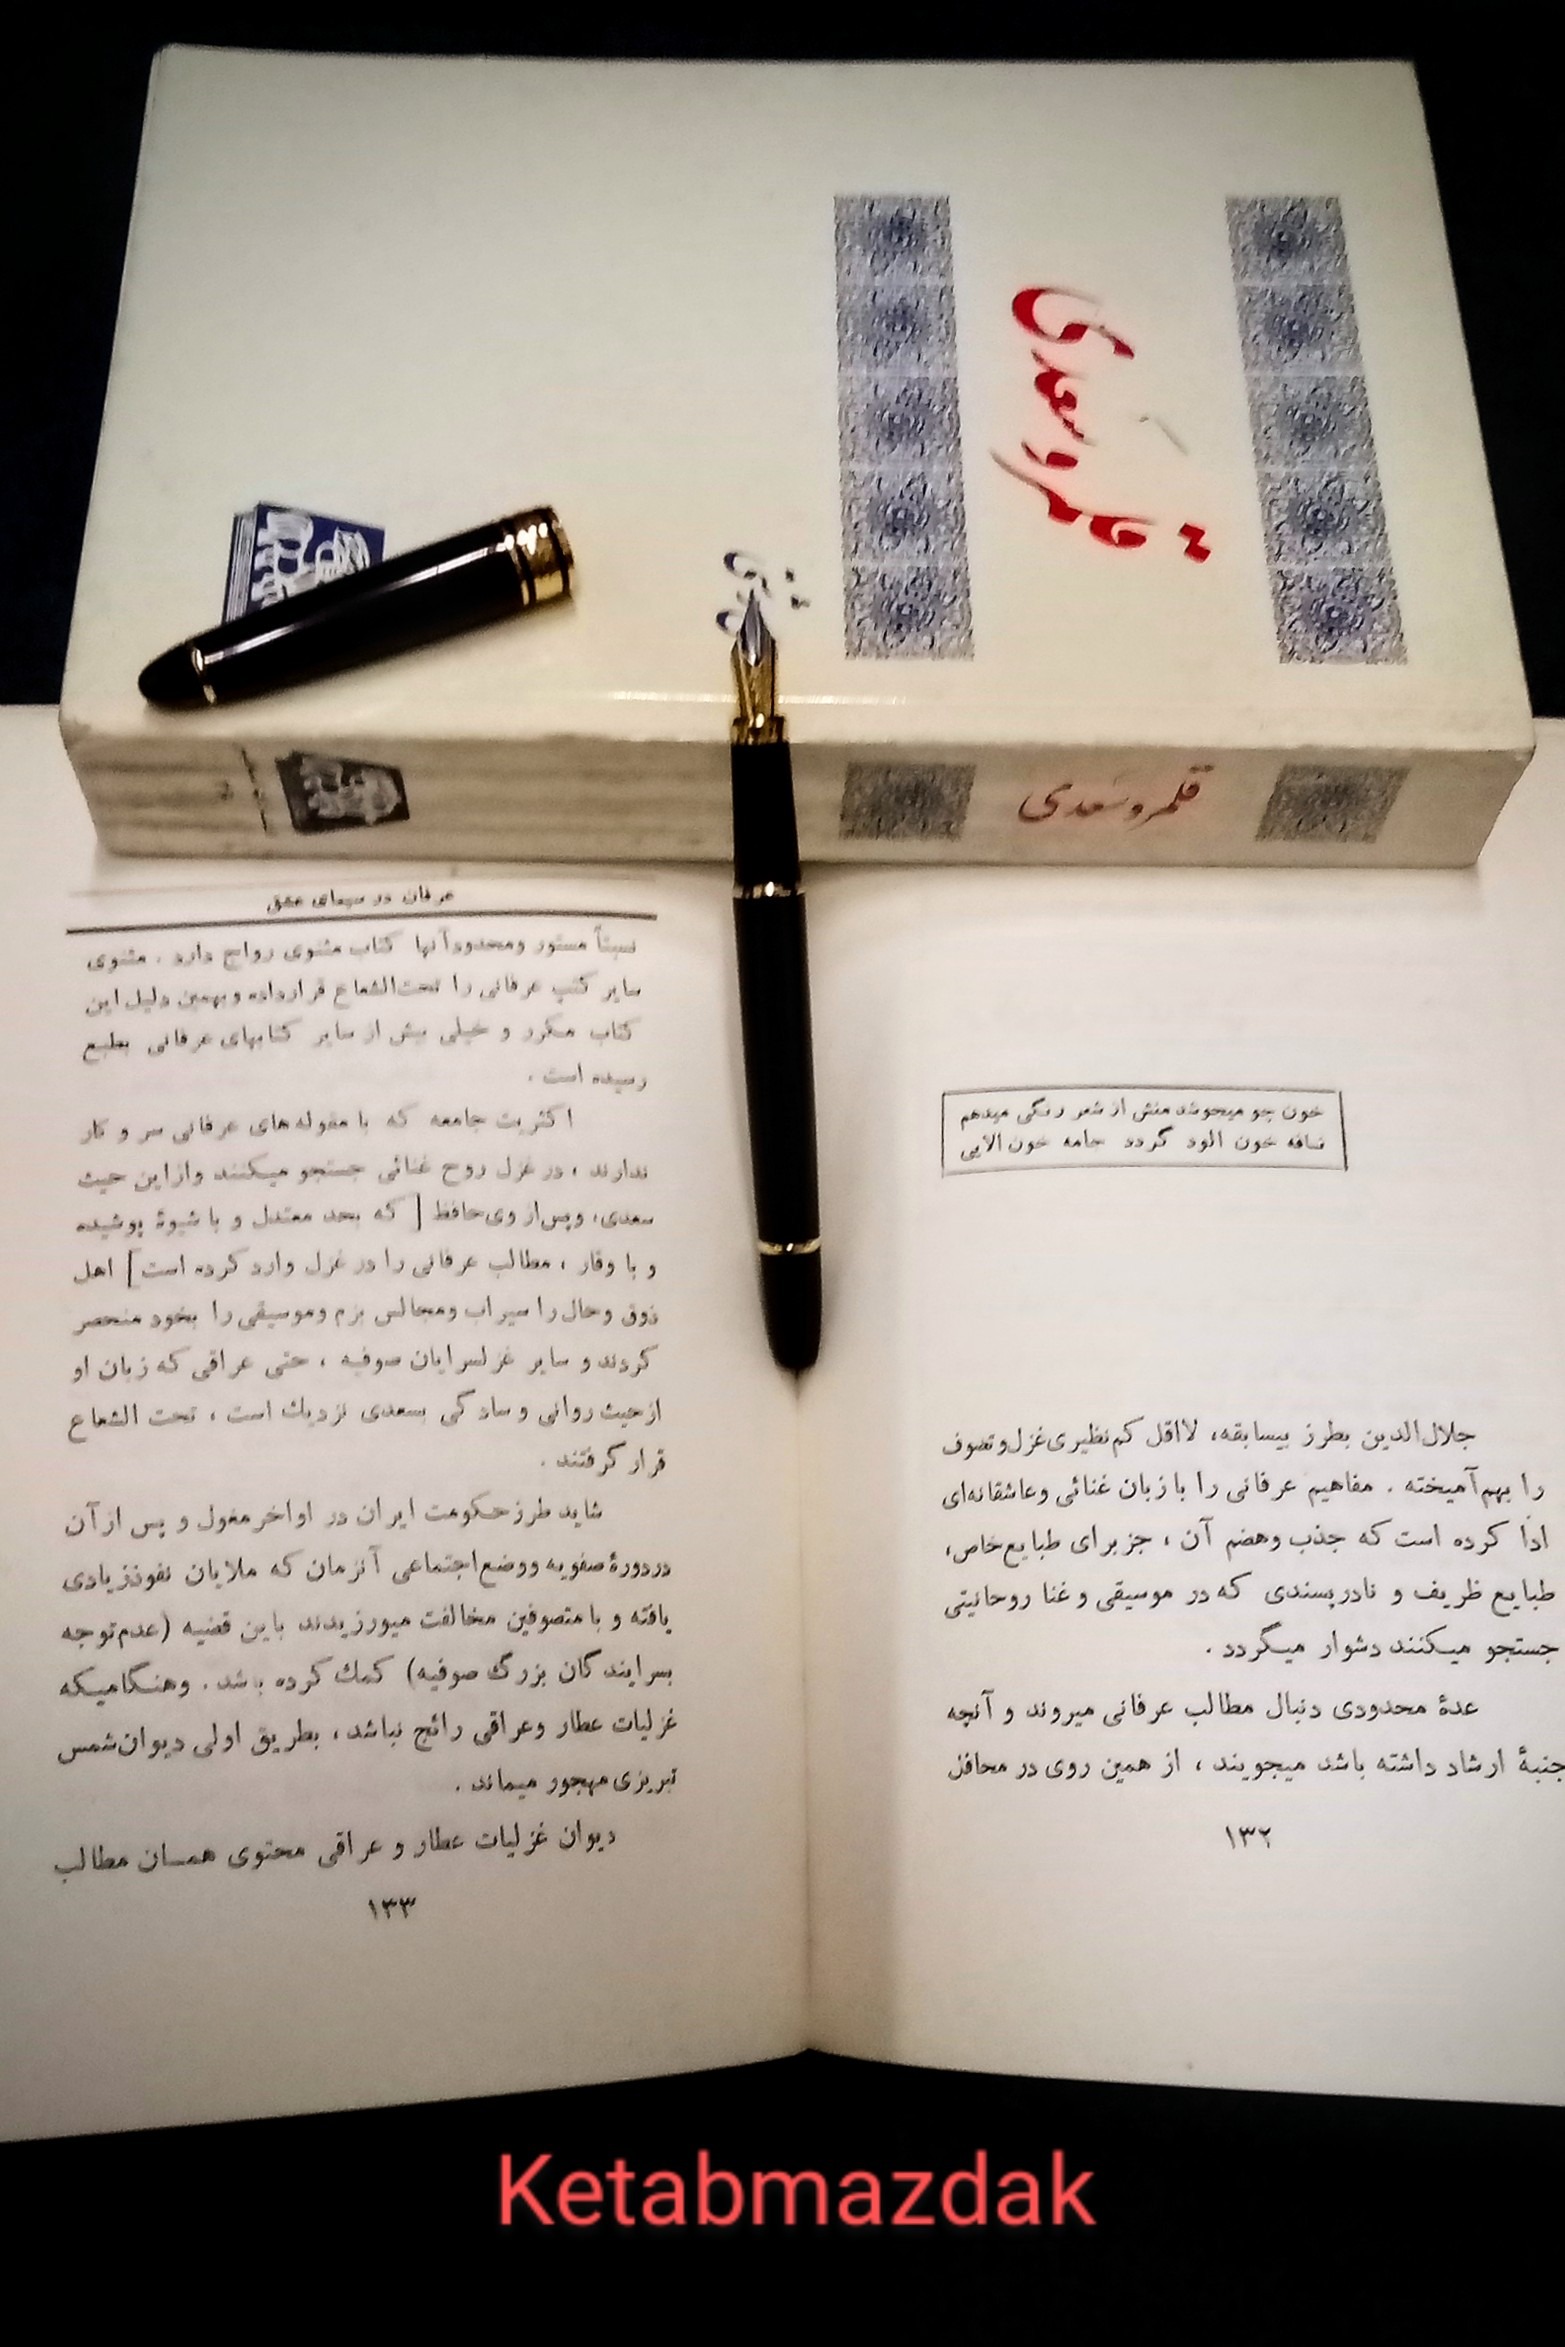 قلمرو سعدی
دشتی
قلمرو سعدی
خون چو میجوشد منش از شعر رنگی میدهم
نافه خون آلود گردد جامه خون الایی
جلال‌الدین بطرز بیسابقه، لااقل کم‌نظیری غزل و تصوف
را بهم آمیخته . مفاهیم عرفانی را با زبان غنائی و عاشقانه‌ای
ادا کرده است که جذب و هضم آن ، جز برای طبایع خاص،
طبایع ظریف و نادرپسندی که در موسیقی و غنا روحانیتی
جستجو میکنند دشوار میگردد .
عدهٔ محدودی دنبال مطالب عرفانی میروند و آنچه
جنبهٔ ارشاد داشته باشد میجویند ، از همین روی در محافل
۱۳۲
عرفان در سیمای عشق
نسبتاً مستور و محدود آنها کتاب مثنوی رواج دارد . مثنوی
سایر کتب عرفانی را تحت‌الشعاع قرارداده و بهمین دلیل این
کتاب مکرر و خیلی بیش از سایر کتابهای عرفانی بطبع
رسیده است .
اکثریت جامعه که با مقوله‌های عرفانی سر و کار
ندارند ، در غزل روح غنائی جستجو میکنند و از این حیث
سعدی، و پس از وی حافظ [ که بحد معتدل و با شیوهٔ پوشیده
و با وقار ، مطالب عرفانی را در غزل وارد کرده است ] اهل
ذوق و حال را سیراب و مجالس بزم و موسیقی را بخود منحصر
کردند و سایر غزلسرایان صوفیه ، حتی عراقی که زبان او
از حیث روانی و سادگی بسعدی نزدیک است ، تحت الشعاع
قرار گرفتند .
شاید طرز حکومت ایران در اواخر مغول و پس از آن
در دورهٔ صفویه و وضع اجتماعی آنزمان که ملایان نفوذ زیادی
یافته و با متصوفین مخالفت میورزیدند باین قضیه (عدم توجه
بسرایندگان بزرگ صوفیه) کمک کرده باشد . وهنگامیکه
غزلیات عطار و عراقی رائج نباشد ، بطریق اولی دیوان شمس
تبریزی مهجور میماند .
دیوان غزلیات عطار و عراقی محتوی همسان مطالب
۱۳۳
Ketabmazdak